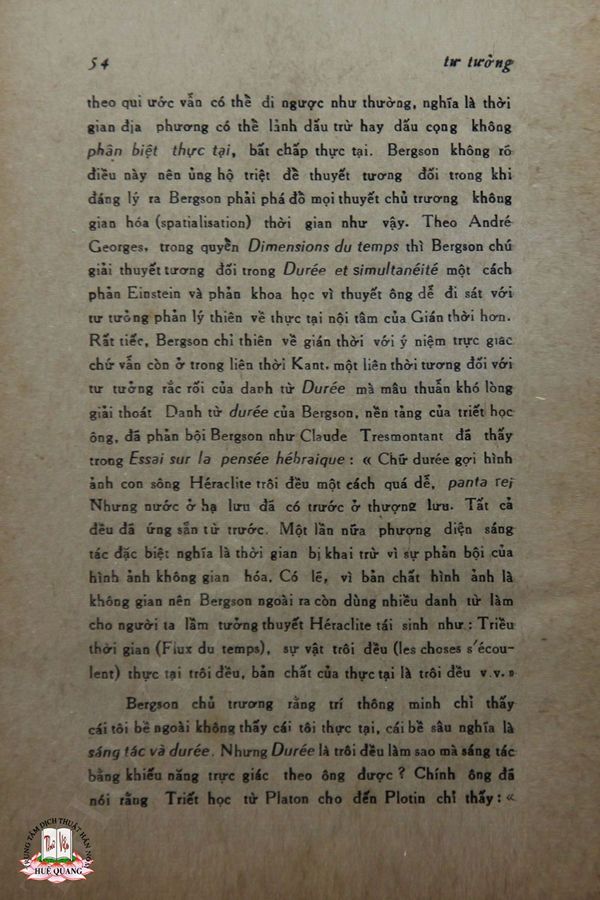 54
tư tưởng
theo qui ước vẫn có thể đi ngược như thường, nghĩa là thời
gian địa phương có thể lảnh dấu trừ hay dấu cọng không
phận biệt thực tại, bất chấp thực tại. Bergson không rõ
điều này nên ủng hộ triệt để thuyết tương đối trong khi
đáng lý ra Bergson phải phá đổ mọi thuyết chủ trương không
gian hóa (spatialisation) thời gian như vậy. Theo André
Georges, trong quyển Dimensions du temps thì Bergson chú
giải thuyết tương đối trong Durée et simultanéité một cách
phản Einstein và phản khoa học vì thuyết ông dễ đi sát với
tư tưởng phản lý thiên về thực tại nội tâm của Gián thời hơn.
Rất tiếc, Bergson chỉ thiên về gián thời với ý niệm trực giác
chứ vẫn còn ở trong liên thời Kant, một liên thời tương đối với
tư tưởng rắc rối của danh từ Durée mà mâu thuẫn khó lòng
giải thoát Danh từ durée của Bergson, nền tảng của triết học
ông, đã phản bội Bergson như Claude Tresmontant đã thấy
trong Essai sur la pensée hébraique : « Chữ durée gợi hình
ảnh con sông Héraclite trôi đều một cách quá dễ, panta rei
Nhưng nước ở hạ lưu đã có trước ở thượng lưu. Tất cả
đều đã ứng sẵn từ trước. Một lần nữa phượng diện sáng
tác đặc biệt nghĩa là thời gian bị khai trừ vì sự phản bội của
hình ảnh không gian hóa. Có lẽ, vì bản chất hình ảnh là
không gian nên Bergson ngoài ra còn dùng nhiều danh từ làm
cho người ta lầm tưởng thuyết Héraclite tái sinh như : Triều
thời gian (Fiux du temps), sự vật trôi đều (les choses s'écou-
lent) thực tại trôi đều, bản chất của thực tại là trôi đều v.v. »
Bergson chủ trương rằng trí thông minh chỉ thấy
cái tôi bề ngoài không thấy cái tôi thực tại, cái bề sâu nghĩa là
sáng tác và durée. Nhưng Durée là trôi đều làm sao mà sáng tác
bằng khiếu năng trực giác theo ông được ? Chính ông đã
nói rằng Triết học từ Platon cho đến Plotin chỉ thấy : «
TRUNG TÂM DỊCH THUẬT HÁN NÔM
HUỆ QUANG